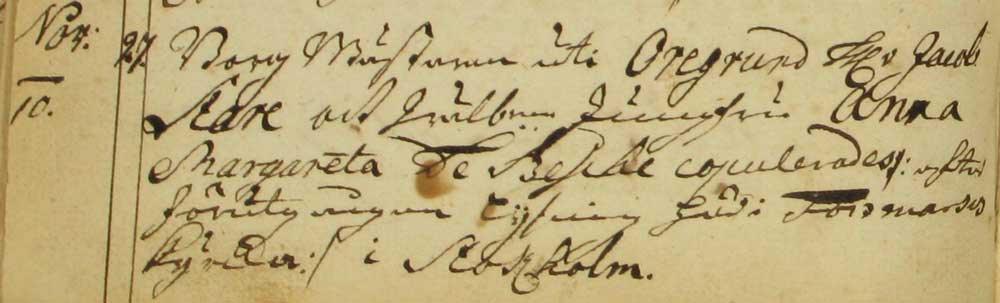 Nov: 27. Borg Mästaren uti Öregrund Hr Jacob
10. Stare och Jungfru Anna
Margareta De Besche copulerades /: efter
förutgången lysning har i Forsmarks
kyrcka: / i Stockholm.